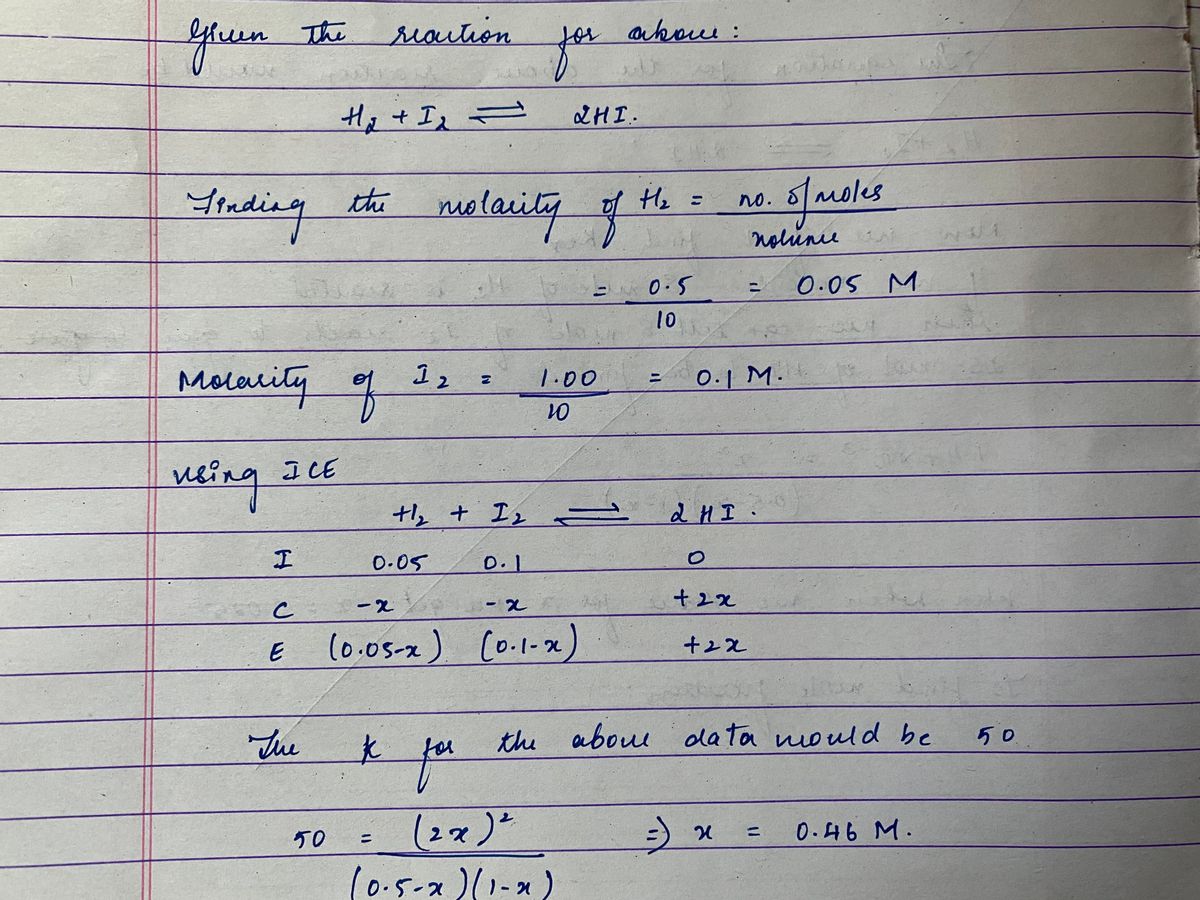 Given the reaction for above :
H2 + I2 ⇌ 2HI.
Finding the molarity of H2 = no. of moles / volume
= 0.5 / 10 = 0.05 M
Molarity of I2 = 1.00 / 10 = 0.1 M.
using ICE
H2 + I2 ⇌ 2HI.
I 0.05 0.1 0
C -x -x +2x
E (0.05-x) (0.1-x) +2x
The K for the above data would be 50
50 = (2x)² / (0.5-x)(1-x) => x = 0.46 M.